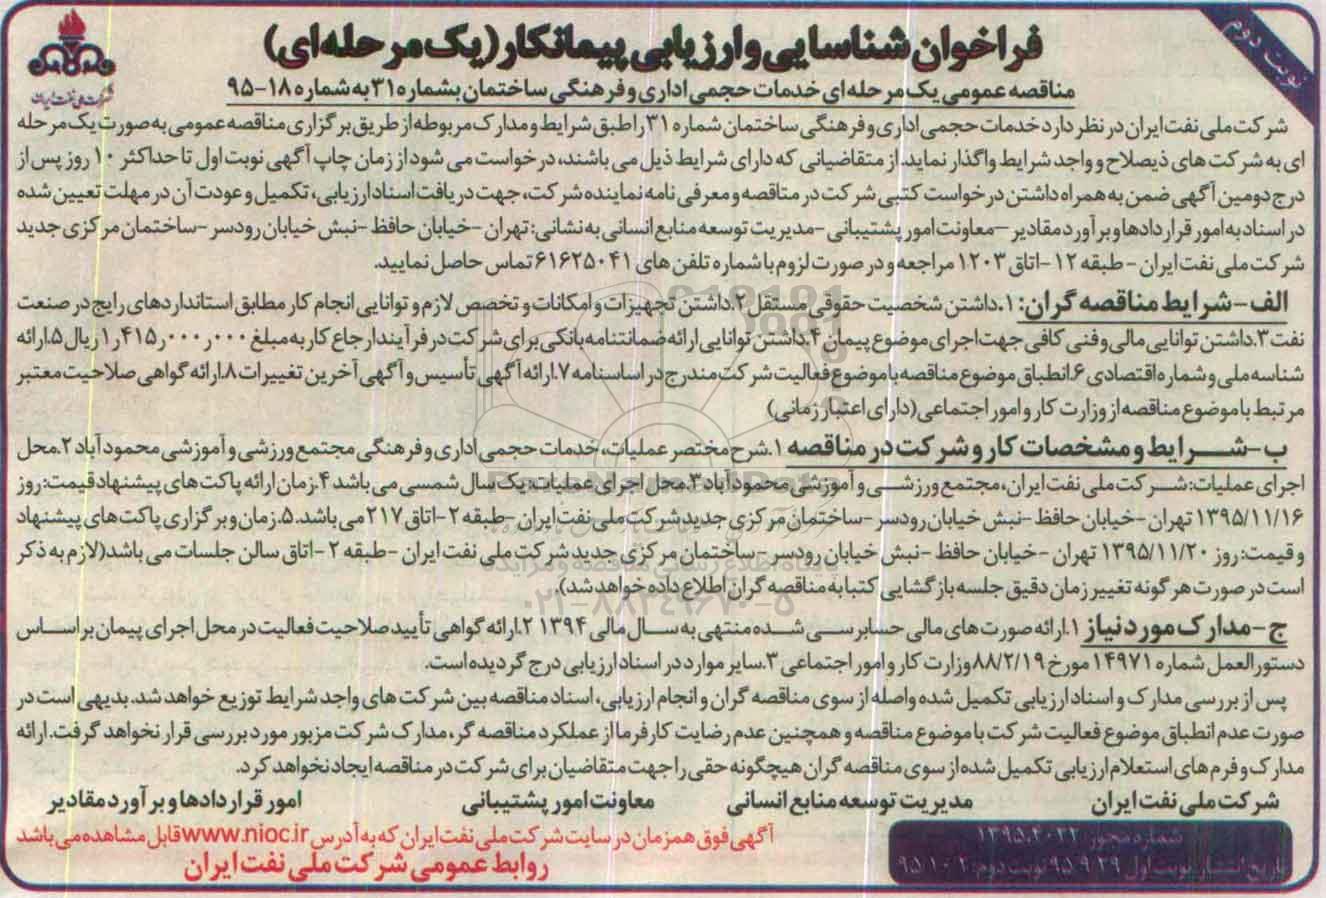 نوبت دوم
شرکت ملی نفت ایران
فراخوان شناسایی و ارزیابی پیمانکار (یک مرحله‌ای)
مناقصه عمومی یک مرحله ای خدمات حجمی اداری و فرهنگی ساختمان بشماره ۳۱ به شماره ۱۸-۹۵
شرکت ملی نفت ایران در نظر دارد خدمات حجمی اداری و فرهنگی ساختمان شماره ۳۱ را طبق شرایط و مدارک مربوطه از طریق برگزاری مناقصه عمومی به صورت یک مرحله
ای به شرکت های ذیصلاح و واجد شرایط واگذار نماید. از متقاضیانی که دارای شرایط ذیل می باشند، درخواست می شود از زمان چاپ آگهی نوبت اول تا حداکثر ۱۰ روز پس از
درج دومین آگهی ضمن به همراه داشتن درخواست کتبی شرکت در مناقصه و معرفی نامه نماینده شرکت، جهت دریافت اسناد ارزیابی، تکمیل و عودت آن در مهلت تعیین شده
در اسناد به امور قراردادها و برآورد مقادیر – معاونت امور پشتیبانی -مدیریت توسعه منابع انسانی به نشانی: تهران -خیابان حافظ -نبش خیابان رودسر -ساختمان مرکزی جدید
شرکت ملی نفت ایران - طبقه ۱۲ -اتاق ۱۲۰۳ مراجعه و در صورت لزوم با شماره تلفن های ۶۱۶۲۵۰۴۱ تماس حاصل نمایید.
الف- شرایط مناقصه گران: ۱.داشتن شخصیت حقوقی مستقل ۲.داشتن تجهیزات و امکانات و تخصص لازم و توانایی انجام کار مطابق استانداردهای رایج در صنعت
نفت ۳.داشتن توانایی مالی و فنی کافی جهت اجرای موضوع پیمان ۴.داشتن توانایی ارائه ضمانتنامه بانکی برای شرکت در فرآیند ارجاع کار به مبلغ ۱٫۴۱۵٫۰۰۰٫۰۰۰ ریال ۵.ارائه
شناسه ملی و شماره اقتصادی ۶.انطباق موضوع مناقصه با موضوع فعالیت شرکت مندرج در اساسنامه ۷.ارائه آگهی تأسیس و آگهی آخرین تغییرات ۸.ارائه گواهی صلاحیت معتبر
مرتبط با موضوع مناقصه از وزارت کار و امور اجتماعی (دارای اعتبار زمانی)
ب- شرایط و مشخصات کار و شرکت در مناقصه ۱.شرح مختصر عملیات، خدمات حجمی اداری و فرهنگی مجتمع ورزشی و آموزشی محمودآباد ۲.محل
اجرای عملیات: شرکت ملی نفت ایران، مجتمع ورزشی و آموزشی محمودآباد ۳.محل اجرای عملیات: یک سال شمسی می باشد ۴.زمان ارائه پاکت های پیشنهاد قیمت: روز
۱۳۹۵/۱۱/۱۶ تهران -خیابان حافظ -نبش خیابان رودسر -ساختمان مرکزی جدید شرکت ملی نفت ایران -طبقه ۲-اتاق ۲۱۷ می باشد. ۵.زمان و برگزاری پاکت های پیشنهاد
و قیمت: روز ۱۳۹۵/۱۱/۲۰ تهران -خیابان حافظ -نبش خیابان رودسر -ساختمان مرکزی جدید شرکت ملی نفت ایران -طبقه ۲ -اتاق سالن جلسات می باشد (لازم به ذکر
است در صورت هر گونه تغییر زمان دقیق جلسه بازگشایی کتبا به مناقصه گران اطلاع داده خواهد شد).
ج- مدارک مورد نیاز ۱.ارائه صورت های مالی حسابرسی شده منتهی به سال مالی ۱۳۹۴ ۲.ارائه گواهی تأیید صلاحیت فعالیت در محل اجرای پیمان بر اساس
دستورالعمل شماره ۱۴۹۷۱ مورخ ۸۸/۲/۱۹ وزارت کار و امور اجتماعی ۳.سایر موارد در اسناد ارزیابی درج گردیده است.
پس از بررسی مدارک و اسناد ارزیابی تکمیل شده واصله از سوی مناقصه گران و انجام ارزیابی، اسناد مناقصه بین شرکت های واجد شرایط توزیع خواهد شد. بدیهی است در
صورت عدم انطباق موضوع فعالیت شرکت با موضوع مناقصه و همچنین عدم رضایت کارفرما از عملکرد مناقصه گر، مدارک شرکت مزبور مورد بررسی قرار نخواهد گرفت. ارائه
مدارک و فرم های استعلام ارزیابی تکمیل شده از سوی مناقصه گران هیچگونه حقی را جهت متقاضیان برای شرکت در مناقصه ایجاد نخواهد کرد.
شرکت ملی نفت ایران مدیریت توسعه منابع انسانی معاونت امور پشتیبانی امور قراردادها و برآورد مقادیر
شماره مجوز: ۱۳۹۵.۴۰۲۲
تاریخ انتشار نوبت اول ۹۵.۹.۲۹ نوبت دوم: ۹۵.۱۰.۲
آگهی فوق همزمان در سایت شرکت ملی نفت ایران که به آدرس www.nioc.ir قابل مشاهده می باشد
روابط عمومی شرکت ملی نفت ایران
۰۲۱-۸۸۳۴۹۶۷۰-۵